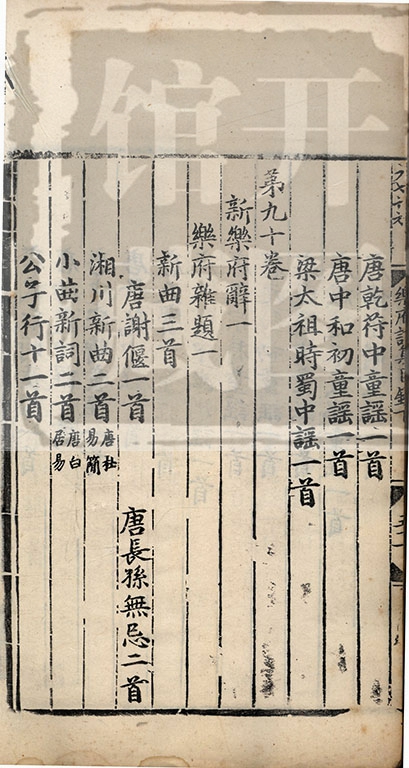 唐乾符中童謡一首
唐中和初童謡一首
梁太祖時蜀中謡一首
第九十卷
新樂府辭一
樂府雜題一
新曲三首
唐謝偃一首 唐長孫無忌二首
湘川新曲二首 唐杜易簡
小曲新詞二首 唐白居易
公子行十一首